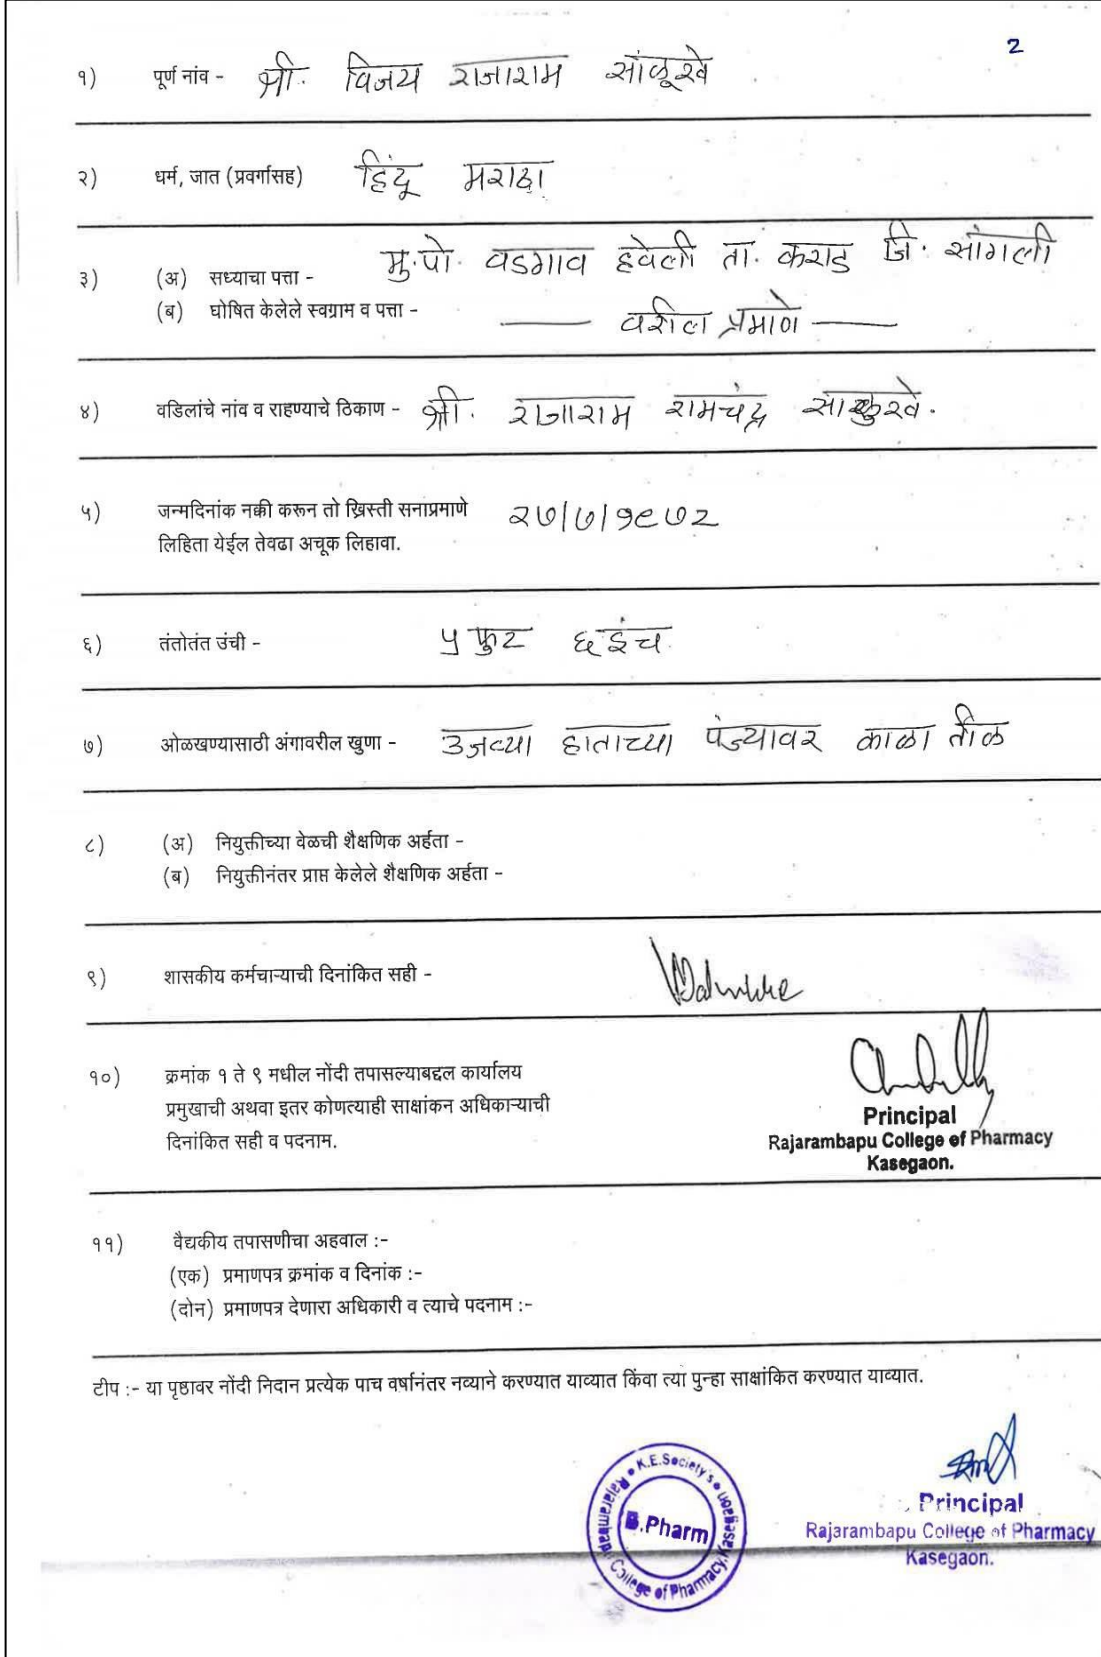 2
१) पूर्ण नांव - श्री. विजय राजाराम साळूंखे
२) धर्म, जात (प्रवर्गासह) हिंदू मराठा
३) (अ) सध्याचा पत्ता - मु.पो. वडगाव हवेली ता. कराड जि. सांगली
(ब) घोषित केलेले स्वग्राम व पत्ता - —— वरील प्रमाणे ——
४) वडिलांचे नांव व राहण्याचे ठिकाण - श्री. राजाराम रामचंद्र साळुंखे.
५) जन्मदिनांक नक्की करून तो ख्रिस्ती सनाप्रमाणे २७/७/१९७२
लिहिता येईल तेवढा अचूक लिहावा.
६) तंतोतंत उंची - ५ फुट ६ इंच
७) ओळखण्यासाठी अंगावरील खुणा - उजव्या हाताच्या पंज्यावर काळा तीळ
८) (अ) नियुक्तीच्या वेळची शैक्षणिक अर्हता -
(ब) नियुक्तीनंतर प्राप्त केलेले शैक्षणिक अर्हता -
९) शासकीय कर्मचाऱ्याची दिनांकित सही -
१०) क्रमांक १ ते ९ मधील नोंदी तपासल्याबद्दल कार्यालय
प्रमुखाची अथवा इतर कोणत्याही साक्षांकन अधिकाऱ्याची
दिनांकित सही व पदनाम.
Principal
Rajarambapu College of Pharmacy
Kasegaon.
११) वैद्यकीय तपासणीचा अहवाल :-
(एक) प्रमाणपत्र क्रमांक व दिनांक :-
(दोन) प्रमाणपत्र देणारा अधिकारी व त्याचे पदनाम :-
टीप :- या पृष्ठावर नोंदी निदान प्रत्येक पाच वर्षानंतर नव्याने करण्यात याव्यात किंवा त्या पुन्हा साक्षांकित करण्यात याव्यात.
K.E.Society's
Rajarambapu College of Pharmacy, Kasegaon
B.Pharm
Principal
Rajarambapu College of Pharmacy
Kasegaon.